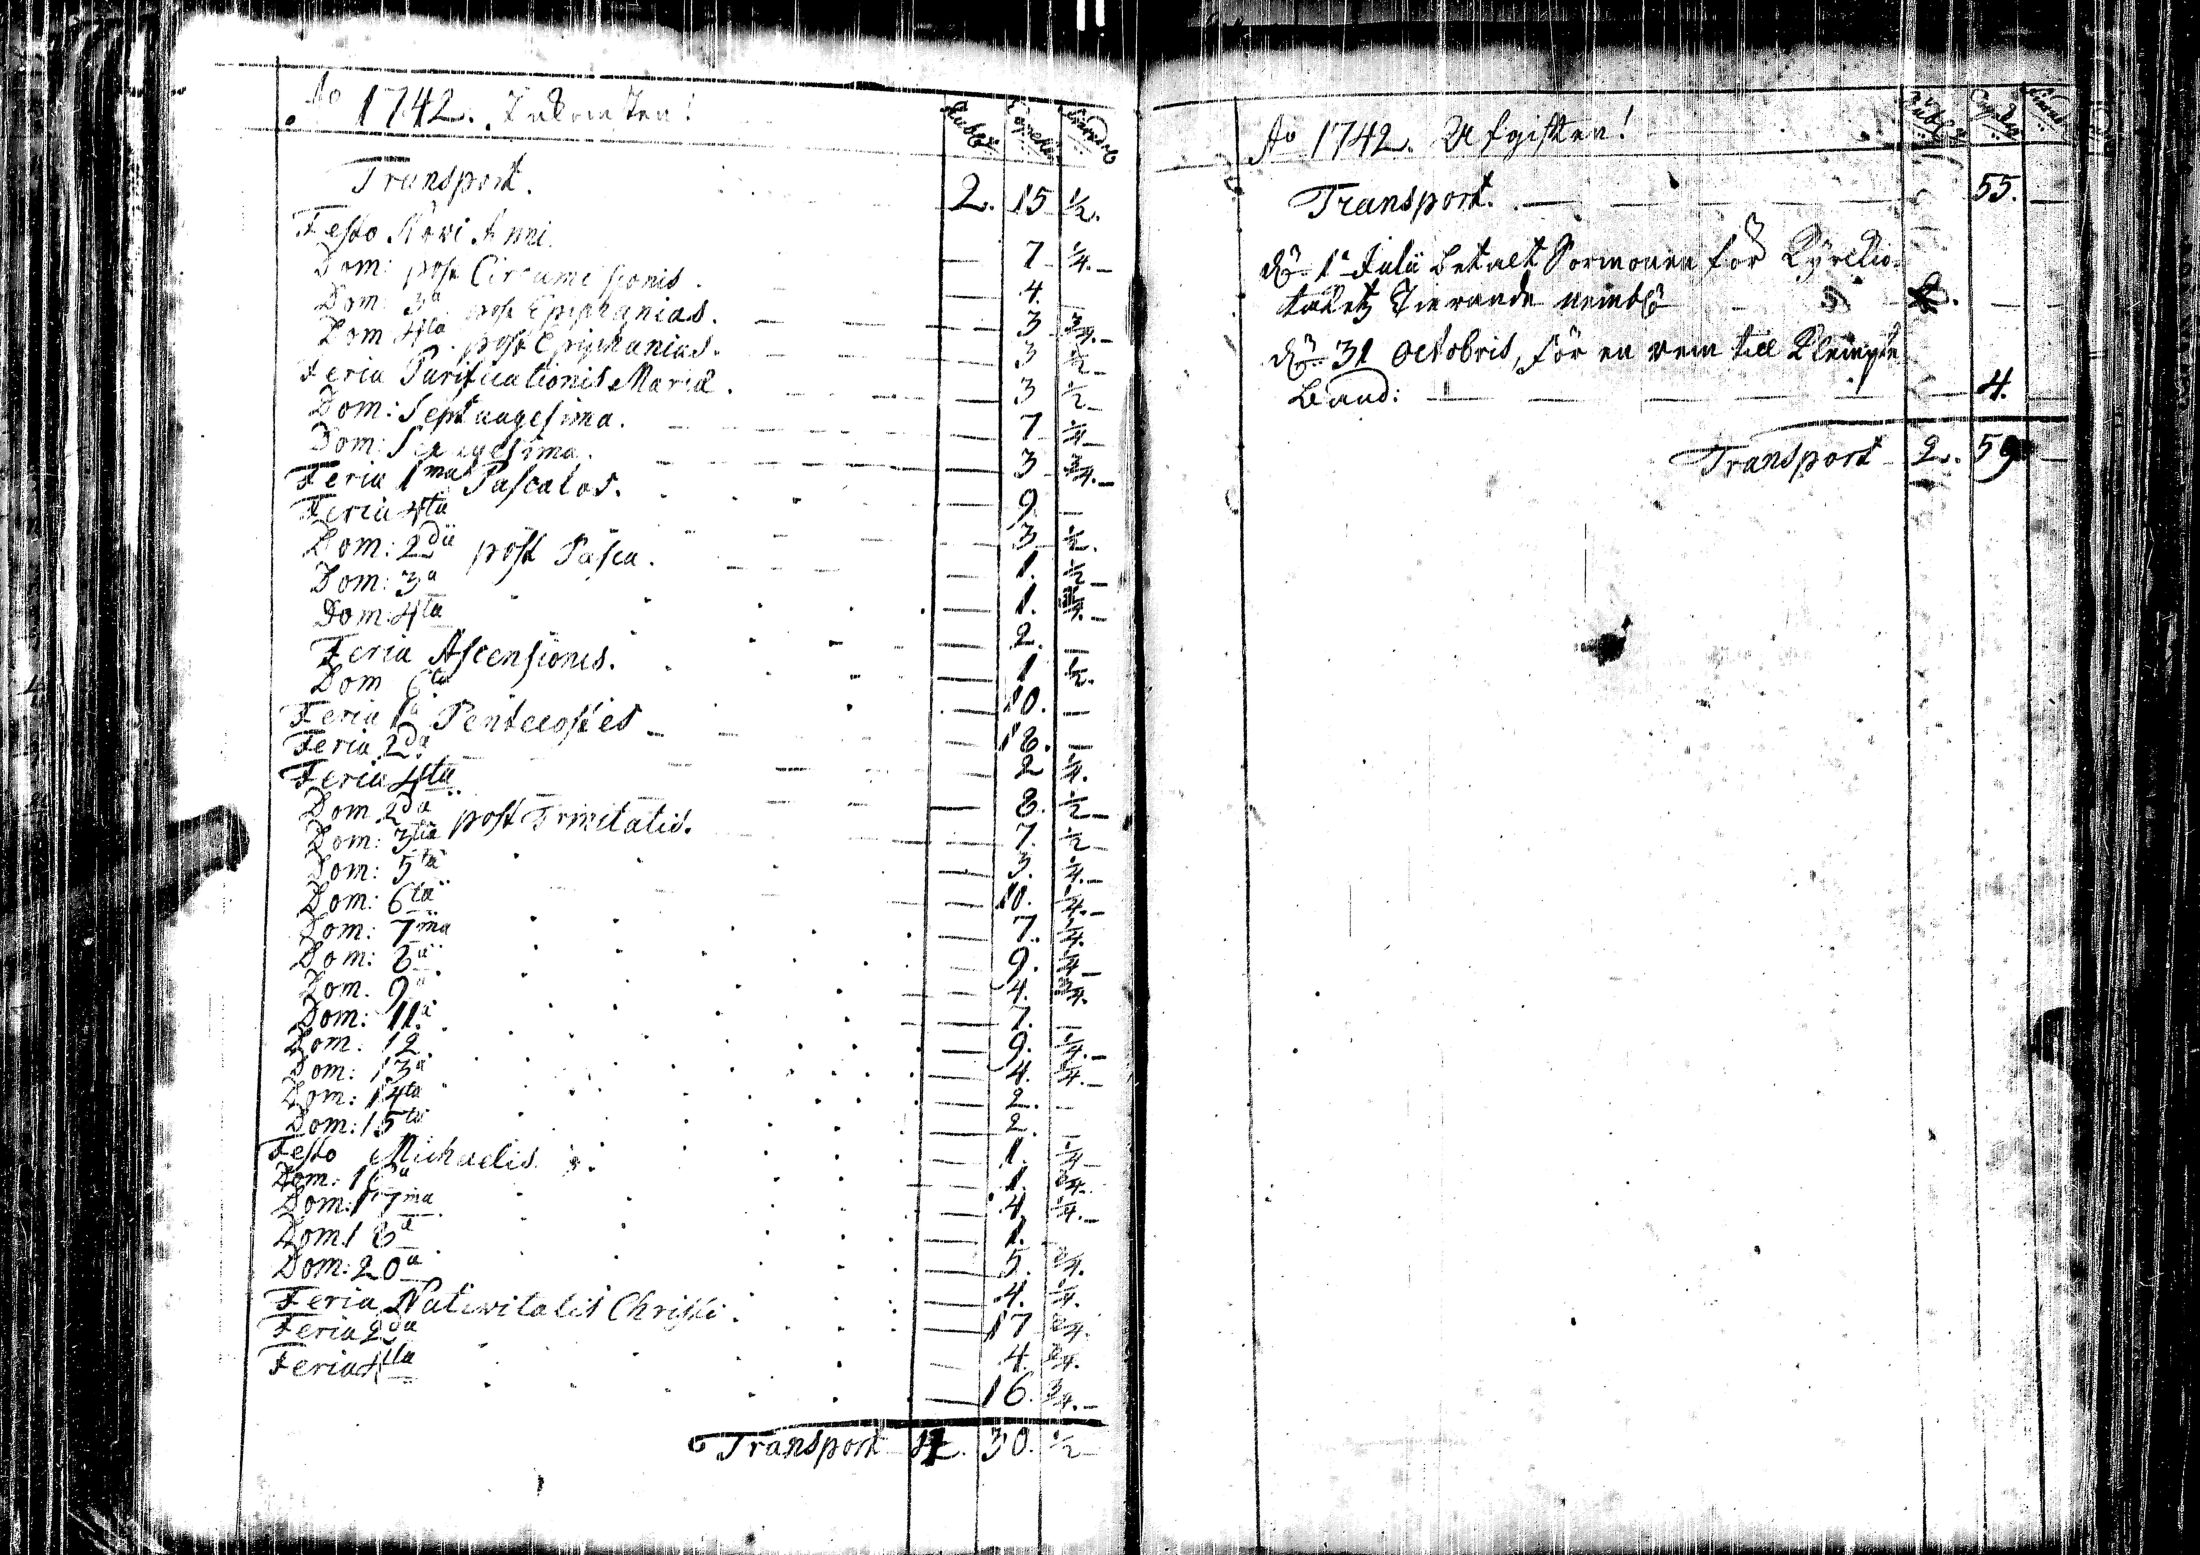 Ao 1742. Inkomsten! Rubel Copek:
Transport. 2. 15 ½.
Festo Novi Anni. — 7 ¼. —
Dom: post Circumcisionis. — 4. —
Dom: 3a post Epiphanias. — 3 ¾. —
Dom 4ta post Epiphanias. — 3 ½ —
Feria Purificationis Mariæ. — 3 ½ —
Dom: Septuagesima. — 7 ¼ —
Dom: Sexagesima. — 3 ¾. —
Feria 1ma Pascatos. — 9 —
Feria 4ta — 3 ½.
Dom: 2da post Pasca. — 1. ½ —
Dom: 3a — 1. ¾. —
Dom: 4ta — 2. —
Feria Ascensionis. — 1 ½.
Dom 6ta — 10. —
Feria 1a Pentecostes — 18. —
Feria 2da — 2 ¼.
Feria 4ta — 8. ½ —
Dom 2da post Trinitatis. — 7. ½ —
Dom: 3tia — 3. ¼. —
Dom: 5ta — 10. ¼. —
Dom: 6ta — 7. ¼.
Dom: 7ma — 9. ¼ —
Dom: 8a — 4. ¾.
Dom. 9a — 7. —
Dom: 11a — 9. ¼. —
Dom. 12. — 4. ¼. —
Dom: 13a — 2. —
Dom: 14ta — 2. —
Dom: 15ta — 1. ¼ —
Festo Michaelis. — 1. ¾.
Dom: 16a — 4. ¼. —
Dom: 17ma — 1.
Dom 18a — 5. ¼.
Dom: 20a — 4. ¼.
Feria Nativitatis Christi. — 17 ¾.
Feria 2da — 4. ¾.
Feria 4ta — 16. ¾. —
Transport 4. 30. ½ —
Ao 1742. Utgiften!
Transport. — 55. —
d: 1a Julii betalt Sormonen för Kyrckio-
taketz Tierande 2. —
d: 31 Octobris, för en rem till
band: — 4.
Transport 2. 59 —